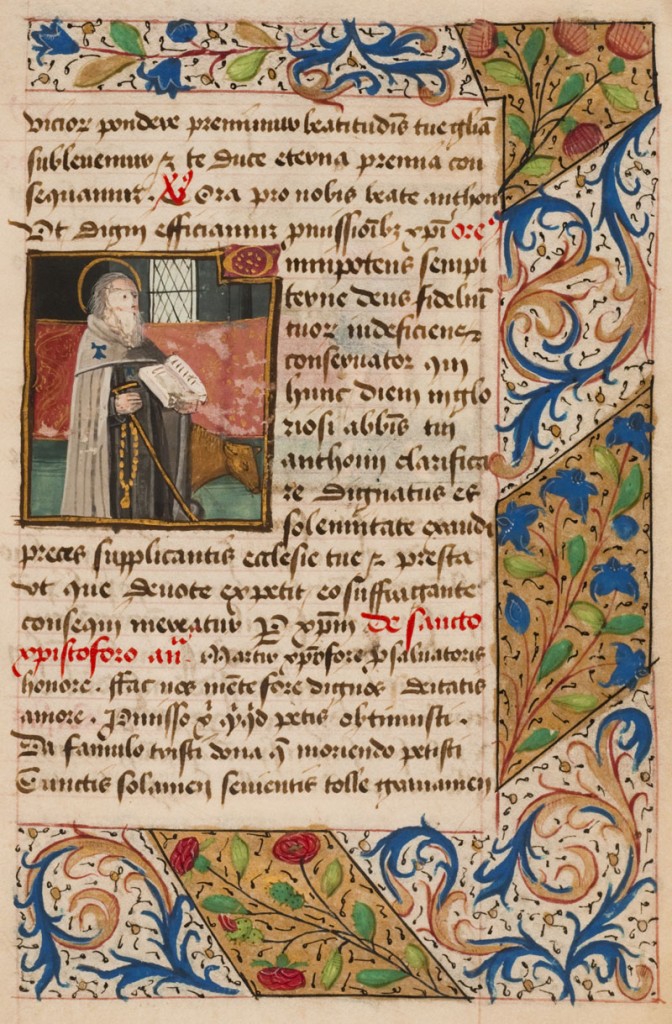 vicior pondere premimur beatitudis tue glia
subleuemur & te duce eterna premia con
sequamur. Ora pro nobis beate anthoni
Ut digni efficiamur xpi ore
mnipotens sempi
terne deus fidelium
tuor indeficiens
conseruator qui
hunc diem in glo
riosi abbis tui
anthonii clarifica
re dignatus es
solemnitate exaudi
preces supplicantis ecclesie tue & presta
vt que deuote expetit eo suffragante
consequi mereatur P xpm De sancto
xpistoforo an. Martir xpofore p saluatoris
honore. ffac nos mete fore dignos deitatis
amore. Pmisso petis obtinuisti.
Da famulo tristi dona q moriendo petisti
Cunctis solamen seuientis tolle grauamen